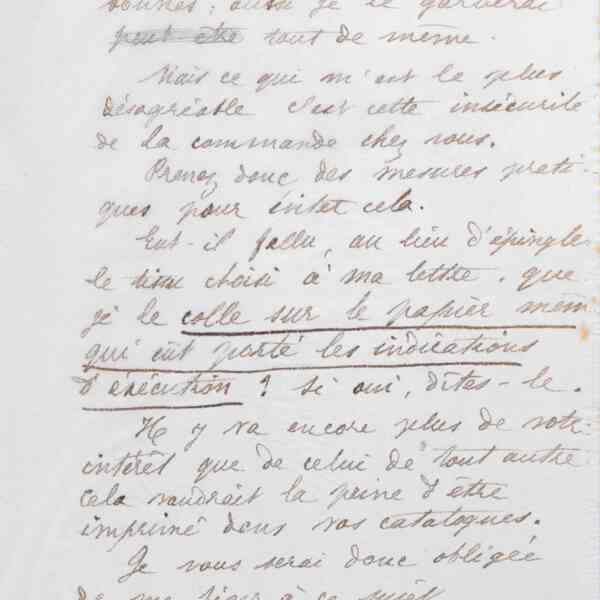 bonnes ; aussi je le garderai
peut être tout de même.
Mais ce qui m'est le plus
désagréable c'est cette insécurité
de la commande chez vous.
Prenez donc des mesures prati-
ques pour cela.
Eut-il fallu, au lieu d'épingler
le tissu choisi à ma lettre, que
je le colle sur le papier mêm
qui eût porté les indications
d'exécution ? si oui, dîtes-le.
Il y va encore plus de votre
intérêt que de celui de tout autre
cela vaudrait la peine d'être
imprimé dans vos catalogues.
Je vous serai donc obligée
de me à ce sujet